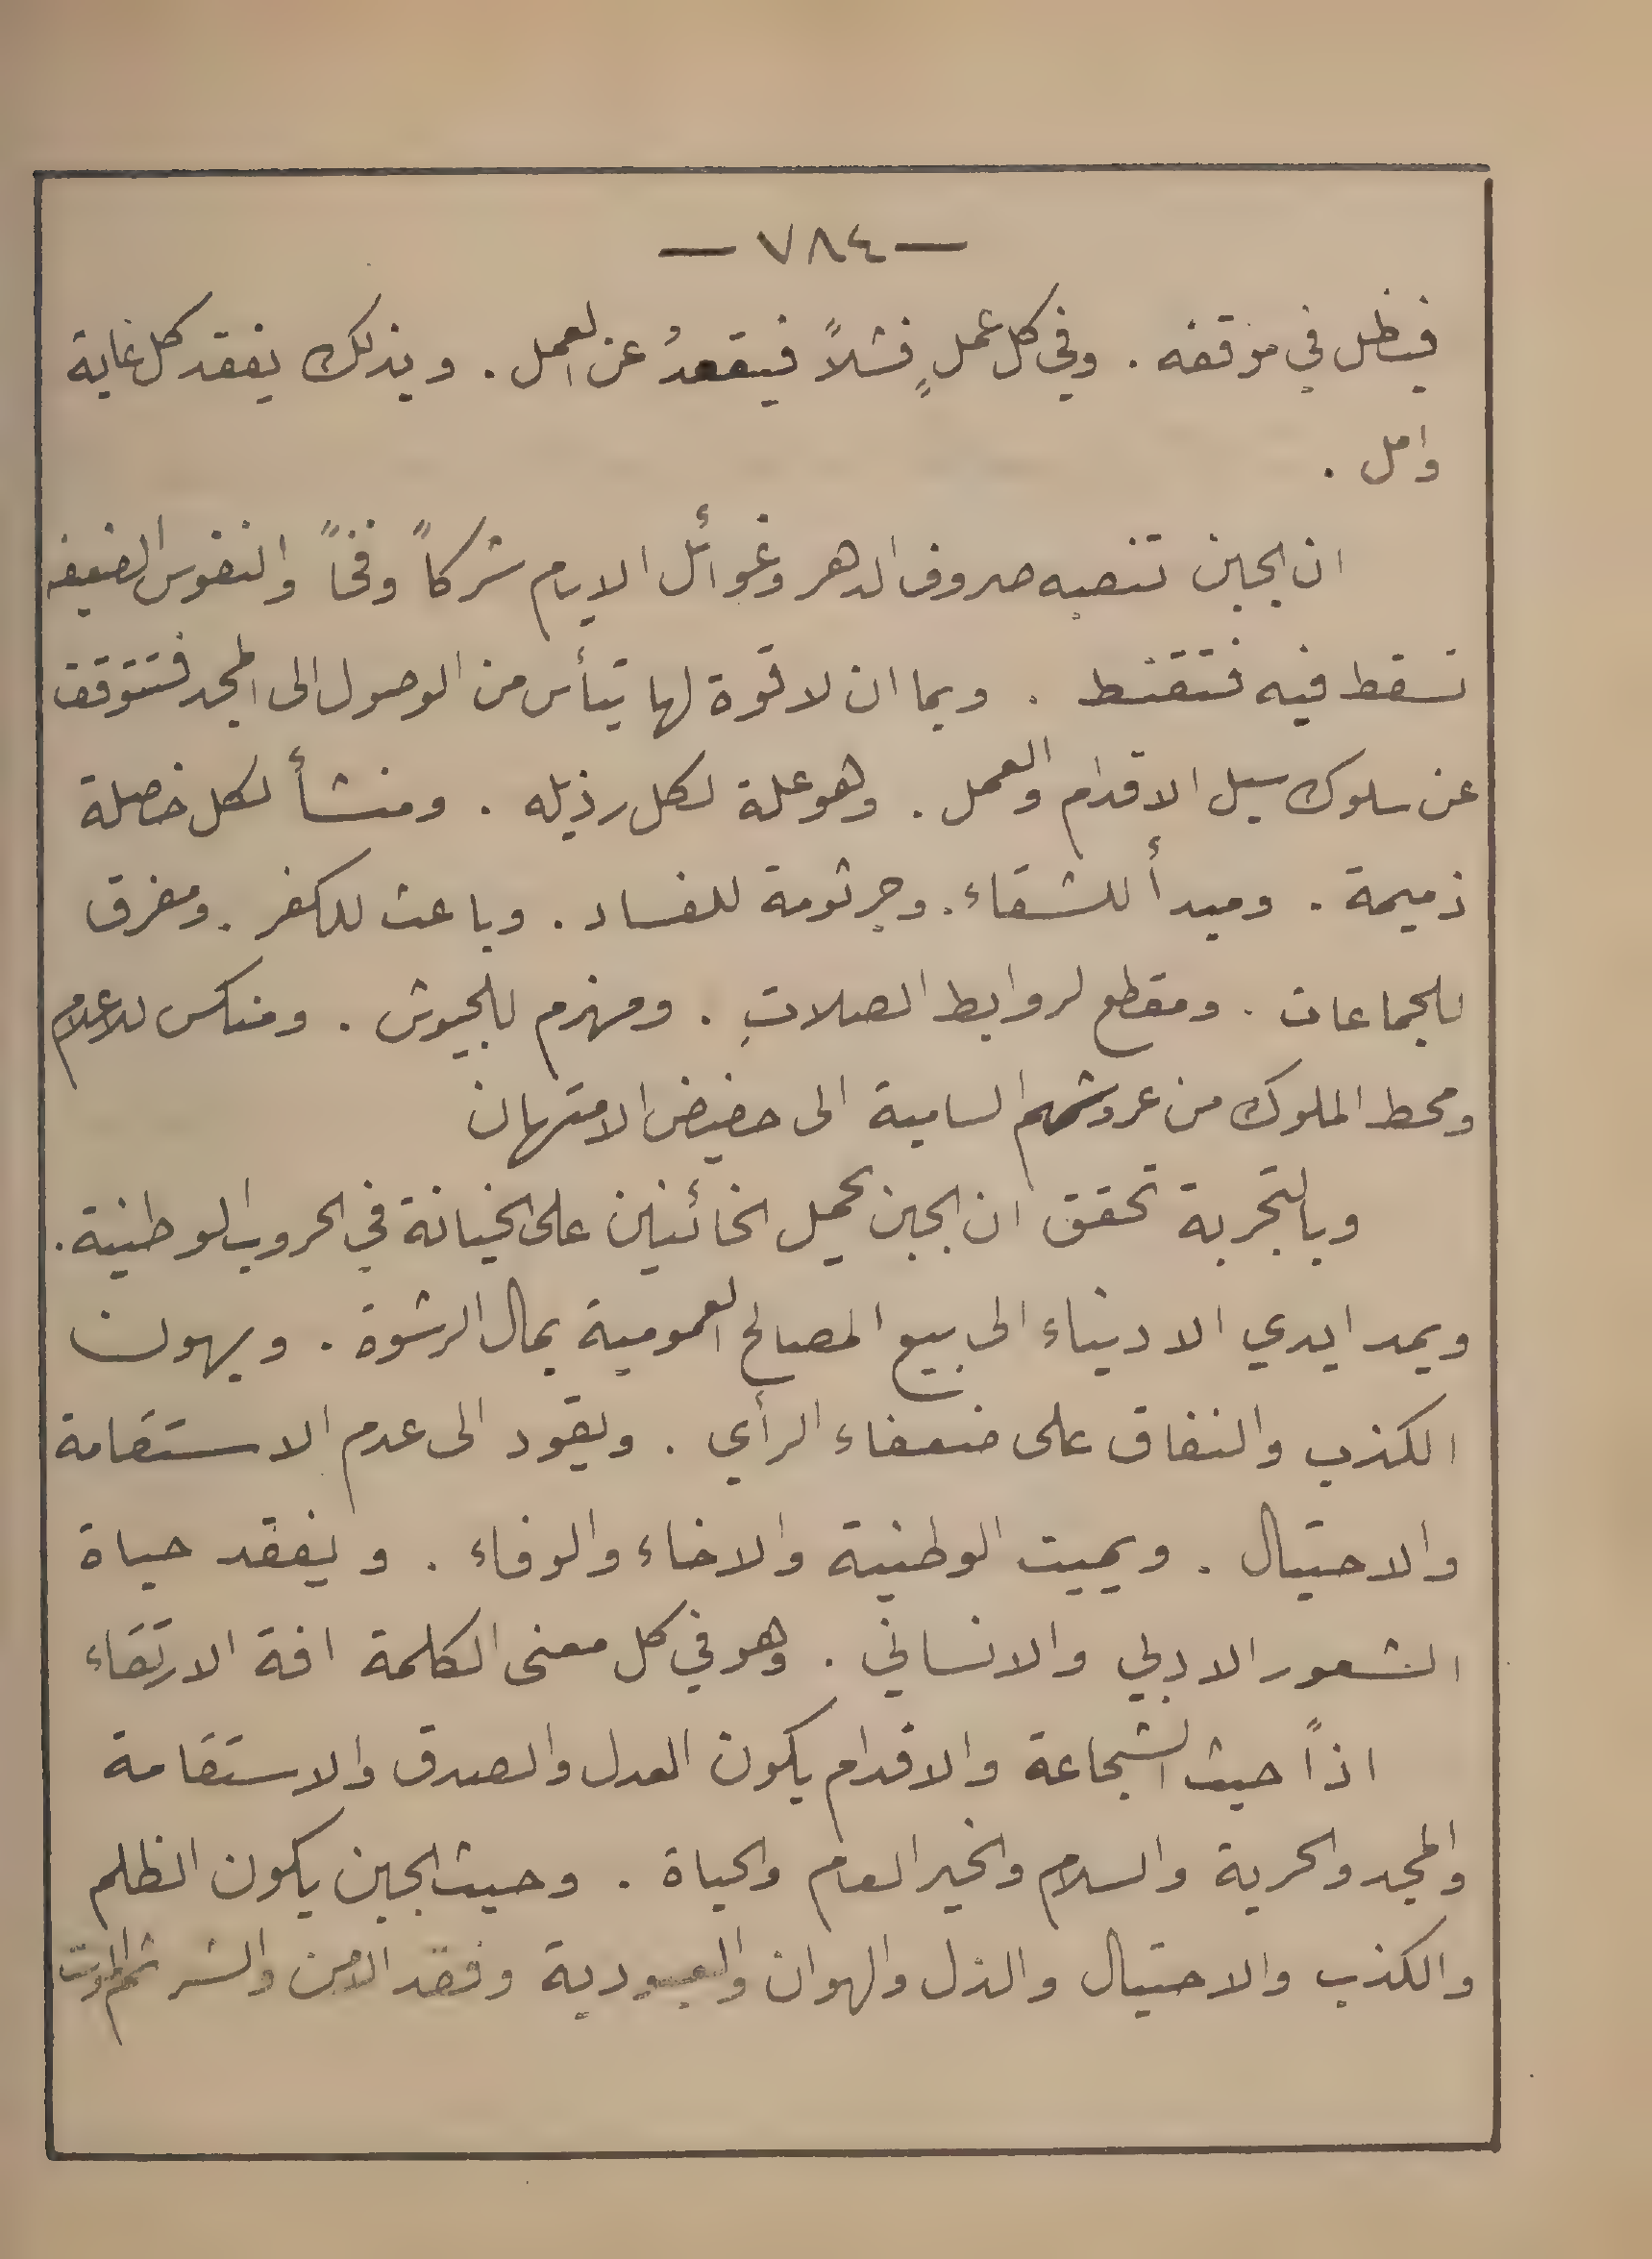 — ٧٨٤ —
فيظل في موقفه . وفي كل عملٍ فشلاً فيقعدُ عن العمل . وبذلك يفقد كل غاية
وامل .
ان الجبن تنصبه صروف الدهر وغوائل الايام شركاً وفخاً والنفوس الضعيفه
تسقط فيه فتقنط . وبما ان لا قوة لها تيأس من الوصول الى المجد فتتوقف
عن سلوك سبل الاقدام والعمل . وهو علة لكل رذيله . ومنشأ لكل خصلة
ذميمة . ومبدأ للشقاء . وجرثومة للفساد . وباعث للكفر . ومفرق
للجماعات . ومقطع لروابط الصلاتِ . ومهزم للجيوش . ومنكس للاعلام
ومحط الملوك من عروشهم السامية الى حضيض الامتهان
وبالتجربة تحقق ان الجبن يحمل الخائنين على الخيانة في الحروب الوطنية .
ويمد ايدي الادنياء الى بيع المصالح العمومية بمال الرشوة . ويهون
الكذب والنفاق على ضعفاء الرأي . ويقود الى عدم الاستقامة
والاحتيال . ويميت الوطنية والاخاء والوفاء . ويفقد حياة
الشعور الادبي والانساني . وهو في كل معنى الكلمة افة الارتقاء
اذاً حيث الشجاعة والاقدام يكون العدل والصدق والاستقامة
والمجد والحرية والسلام والخير العام والحياة . وحيث الجبن يكون الظلم
والكذب والاحتيال والذل والهوان والعبودية وفقد الامن والشر ثم الموت